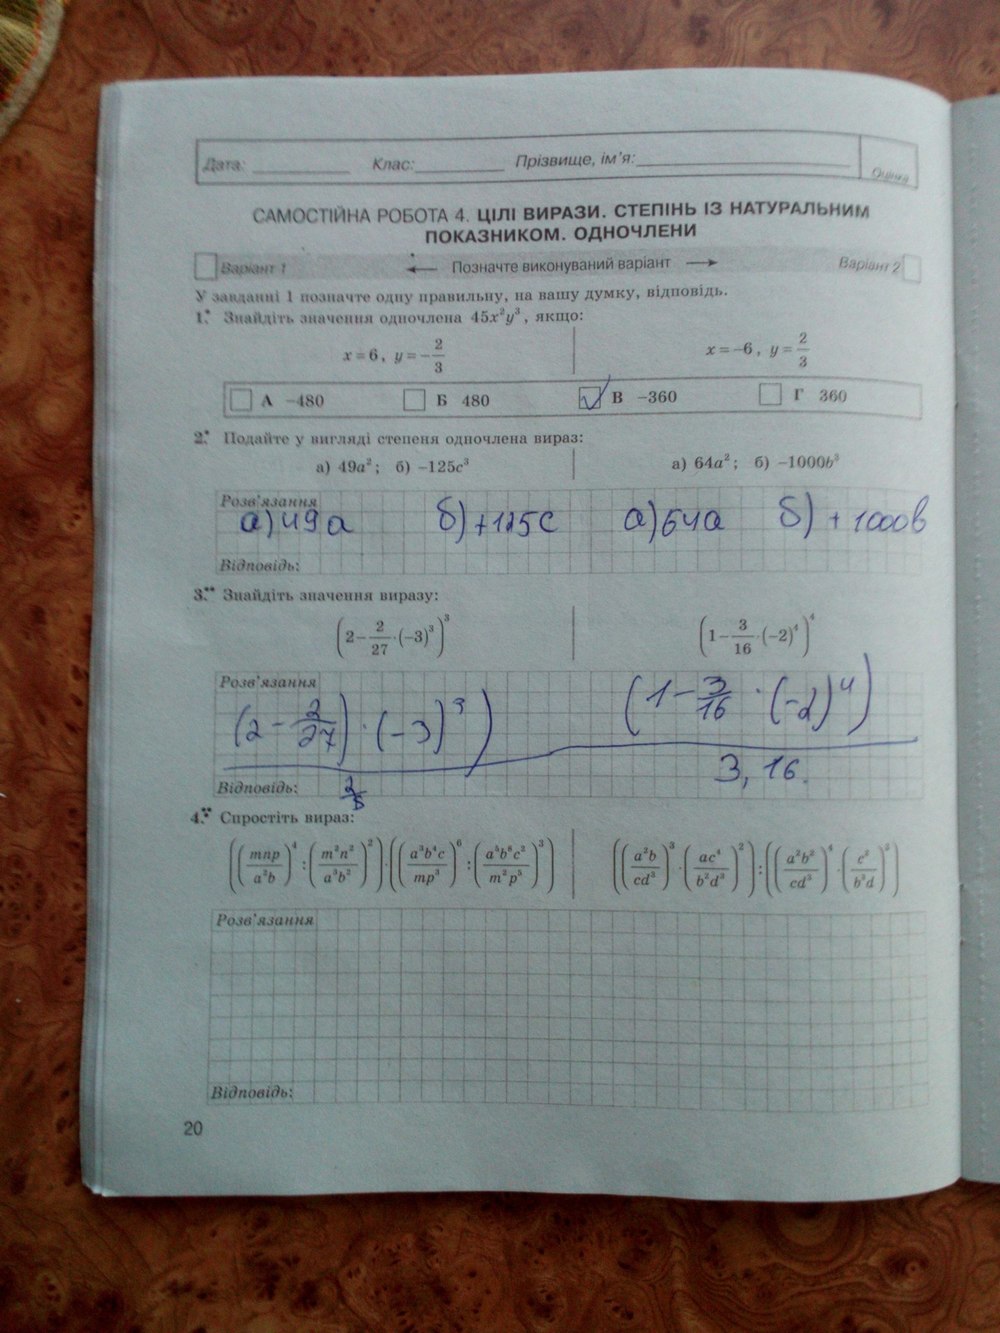 Дата: ________ Клас: ________ Прізвище, ім'я: ________ Оцінка
САМОСТІЙНА РОБОТА 4. ЦІЛІ ВИРАЗИ. СТЕПІНЬ ІЗ НАТУРАЛЬНИМ
ПОКАЗНИКОМ. ОДНОЧЛЕНИ
Варіант 1 ← Позначте виконуваний варіант → Варіант 2
У завданні 1 позначте одну правильну, на вашу думку, відповідь.
1.• Знайдіть значення одночлена 45x²y³, якщо:
x = 6, y = −2/3 x = −6, y = 2/3
А −480 Б 480 В −360 Г 360
2.• Подайте у вигляді степеня одночлена вираз:
а) 49a²; б) −125c³ а) 64a²; б) −1000b³
Розв'язання
а) 49a б) +125c а) 64a б) +1000b
Відповідь:
3.•• Знайдіть значення виразу:
(2 − 2/27 · (−3)³)³ (1 − 3/16 · (−2)⁴)⁴
Розв'язання
(2 − 2/27) · (−3)³) (1 − 3/16 · (−2)⁴)
3, 16.
Відповідь:
4.•• Спростіть вираз:
((mnp/a²b)⁴ : (m²n²/a³b²)²) · ((a³b⁴c/mp³)⁶ : (a⁵b⁸c²/m²p⁵)³) ((a²b/cd³)³ · (ac⁴/b²d³)²) : ((a²b²/cd³)⁴ · (c²/b³d)²)
Розв'язання
Відповідь:
20